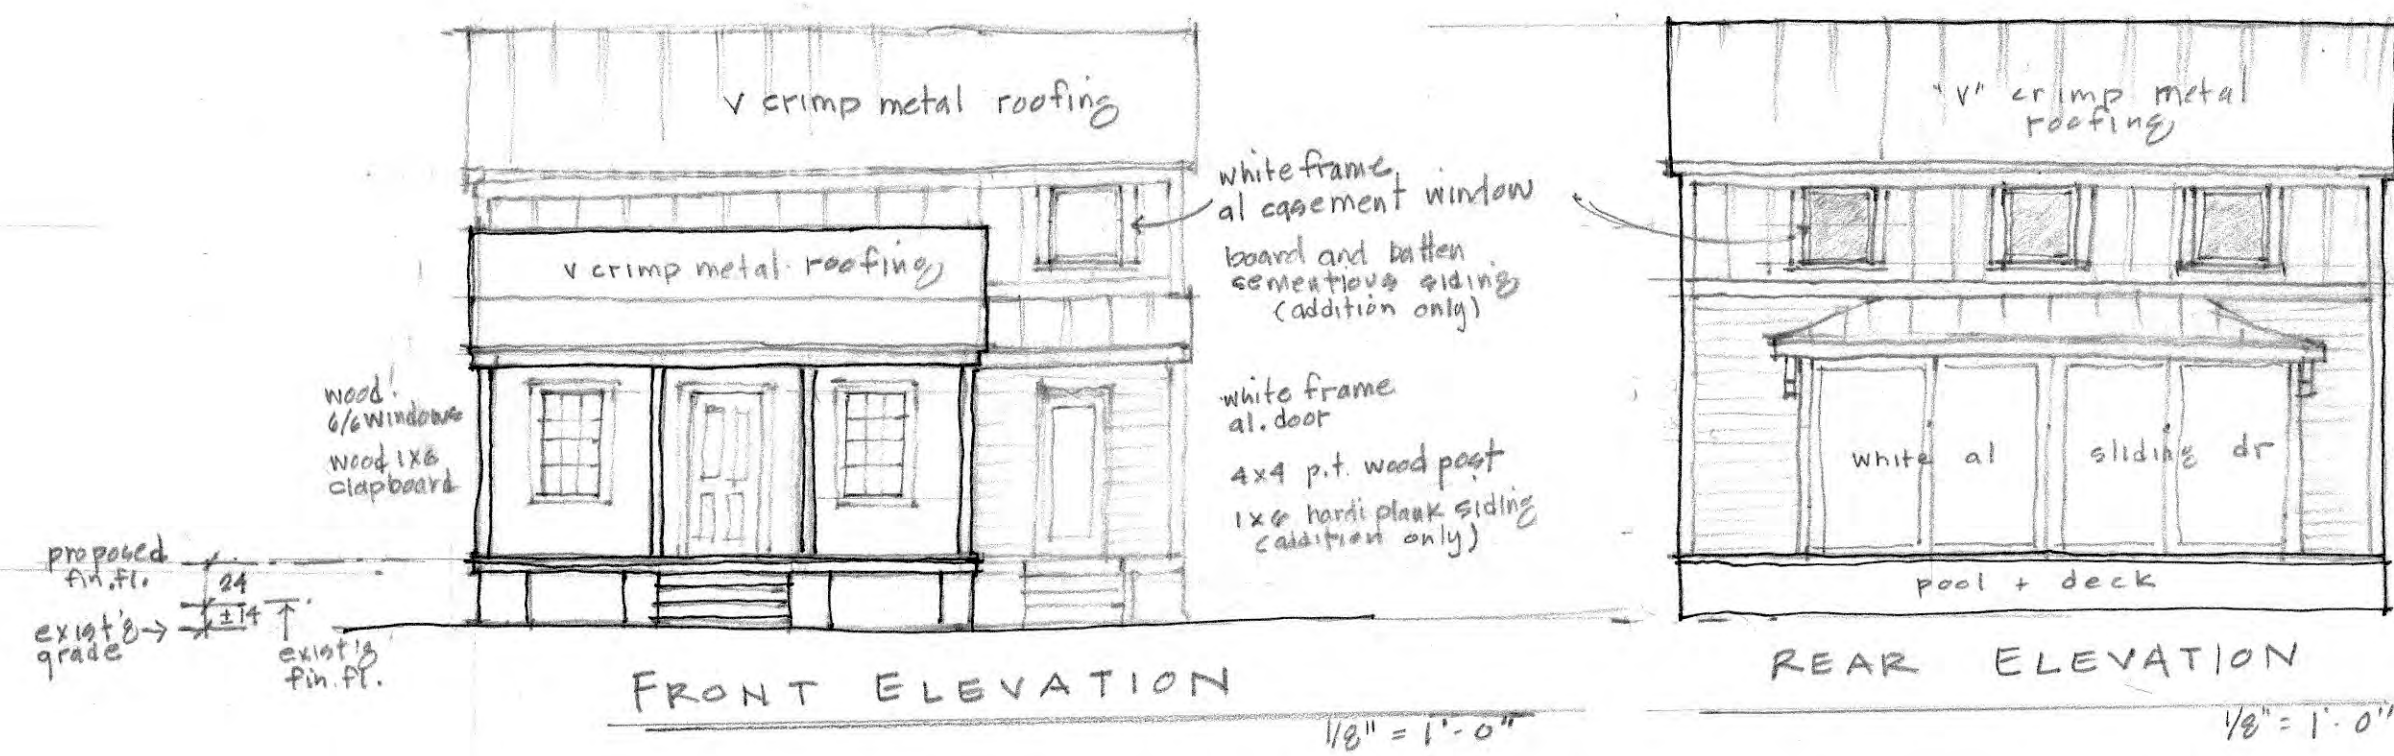 v crimp metal roofing
v crimp metal roofing
white frame
al casement window
board and batten
cementious siding
(addition only)
wood
6/6 windows
wood 1x6
clapboard
white frame
al. door
4x4 p.t. wood post
1x6 hardi plank siding
(addition only)
proposed
fin. fl.
24
±14
exist'g
grade
exist'g
fin. fl.
FRONT ELEVATION
1/8" = 1'-0"
"V" crimp metal
roofing
white al sliding dr
pool + deck
REAR ELEVATION
1/8" = 1'-0"